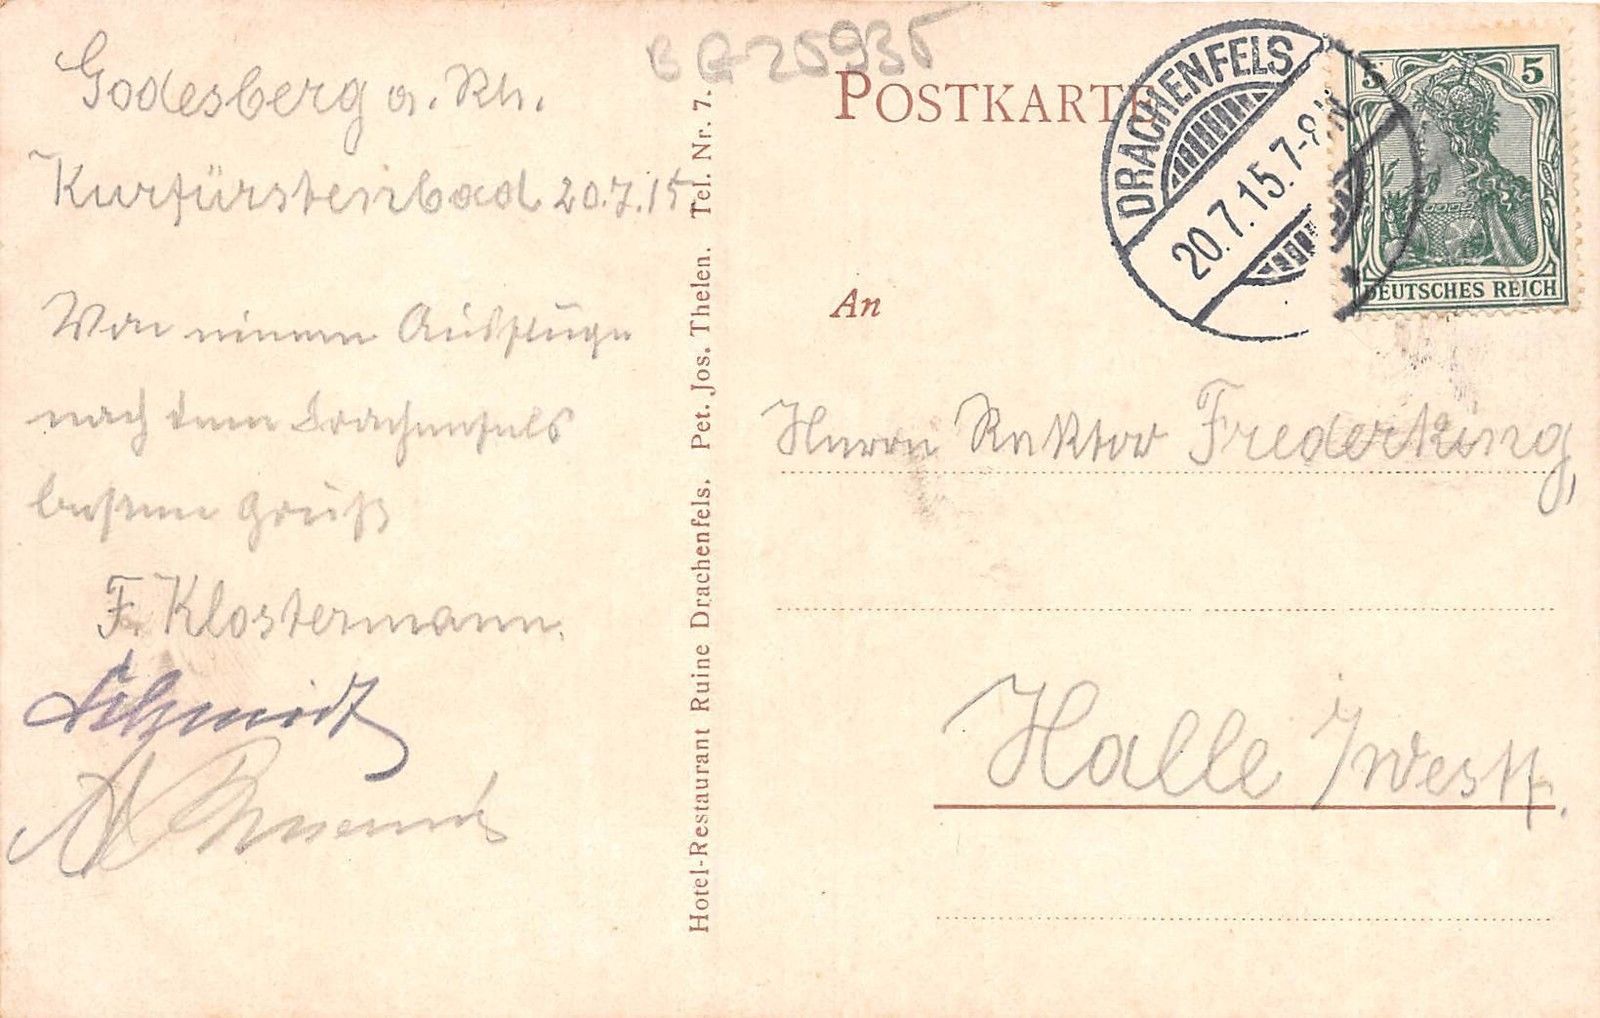 Godesberg a. Rh.
Kurfürstenbad 20.7.15
Von einem Ausfluge
nach dem Drachenfels
besten Gruß
F. Klostermann.
Schmidt
Hotel-Restaurant Ruine Drachenfels. Pet. Jos. Thelen. Tel. Nr. 7.
BA-25935
POSTKARTE
DRACHENFELS
20.7.15.7-8
5 5
DEUTSCHES REICH
An
Herrn Rektor Frederking,
Halle i/Westf.